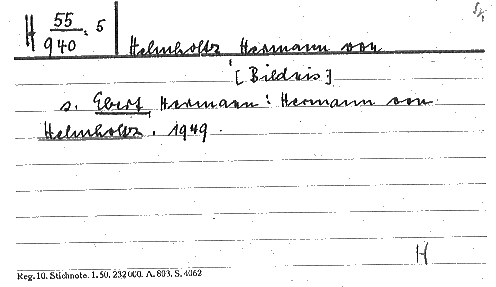 H 55/940 : 5
Helmholtz Hermann von
[Bildnis]
s. Ebert, Hermann: Hermann von
Helmholtz. 1949.
H
Reg. 10. Stichnote. 1. 50. 232000. A. 803. S. 4062